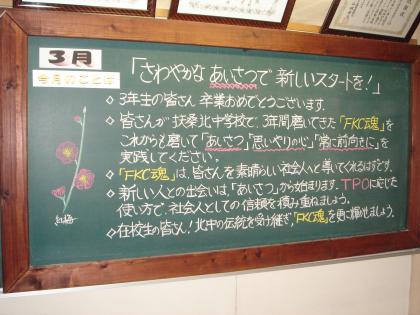 3月
今月のことば
「さわやかな あいさつで 新しいスタートを!」
◇ 3年生の皆さん 卒業おめでとうございます。
◇ 皆さんが 扶桑北中学校で、3年間磨いてきた「FKC魂」を
これからも磨いて「あいさつ」「思いやりの心」「常に前向きに」を
実践してください。
◇「FKC魂」は、皆さんを素晴らしい社会人へと導いてくれるはずです。
◇ 新しい人との出会いは、「あいさつ」から始まります。TPOに応じた
使い方で、社会人としての信頼を積み重ねましょう。
◇ 在校生の皆さん!北中の伝統を受け継ぎ、「FKC魂」を更に輝かせましょう。
紅梅